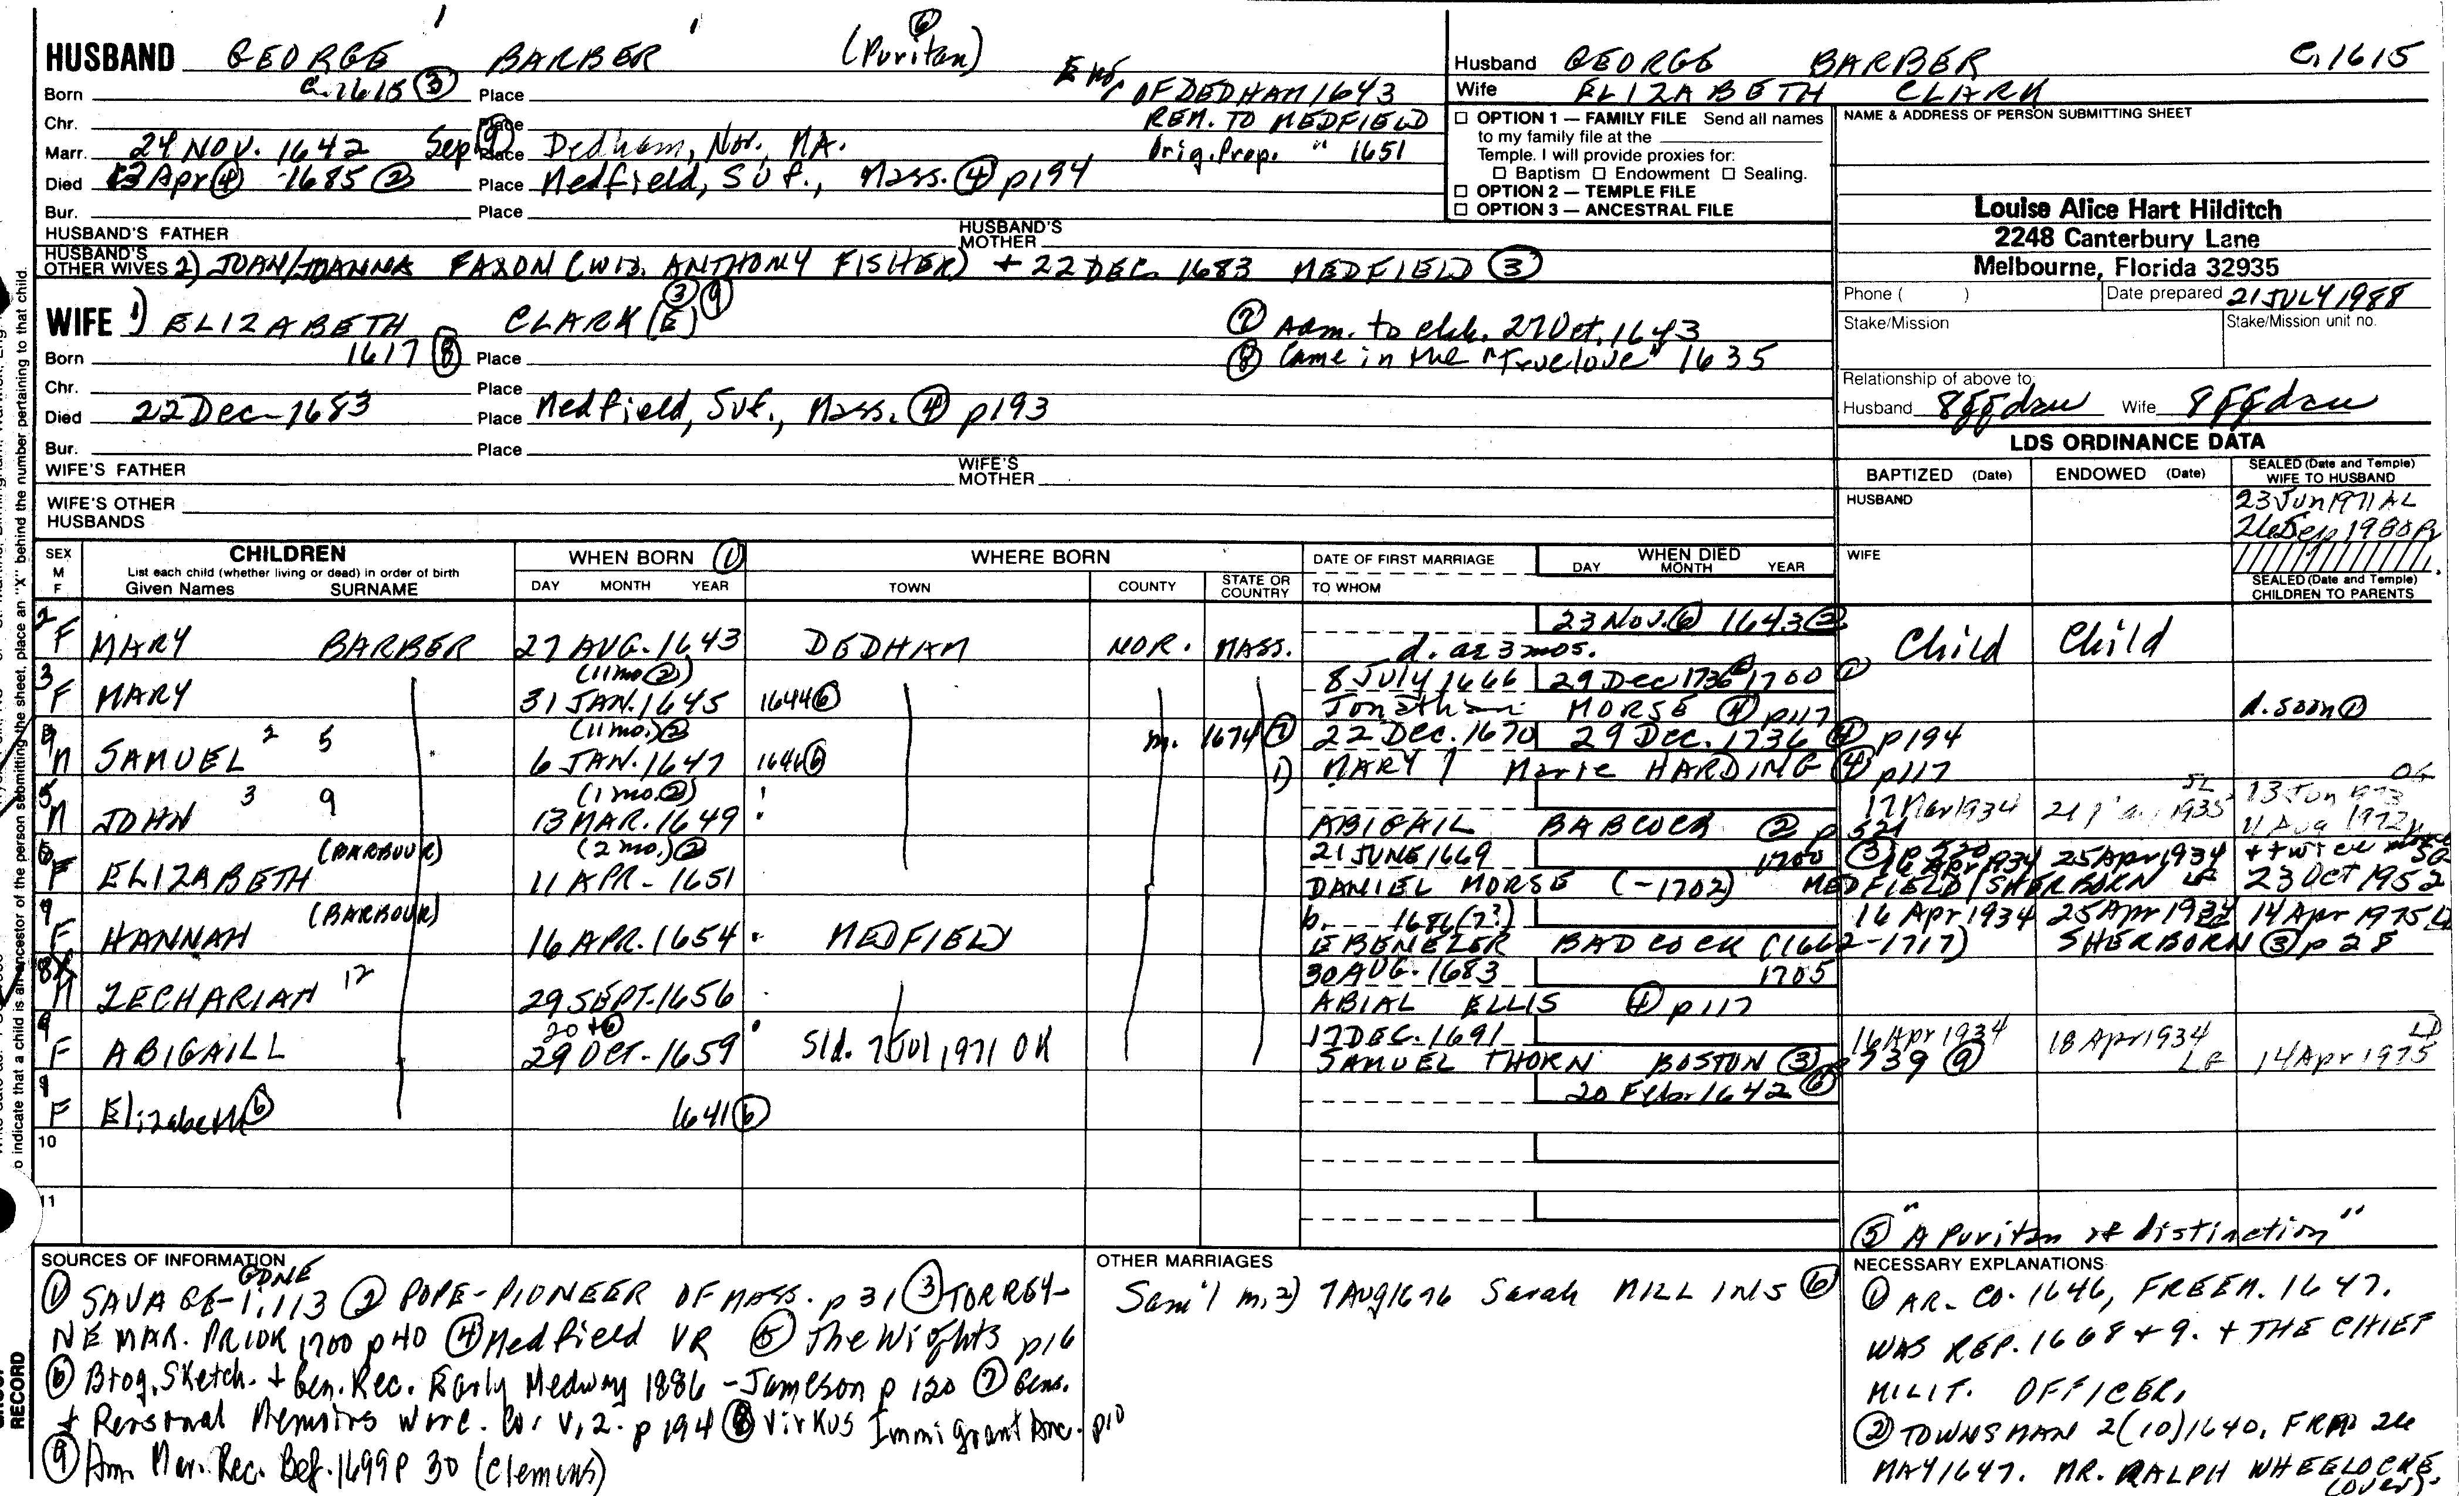 HUSBAND GEORGE BARBER (Puritan) ⑥
Born C. 1615 ③ Place Eng. OF DEDHAM 1643
Chr. Place REM. TO MEDFIELD
Marr. 24 NOV. 1642 Sep ⑨ Place Dedham, Nor., MA. Orig. Prop. " 1651
Died 13 Apr ④ 1685 ② Place Medfield, Suf., Mass. ④ p194
Bur. Place
HUSBAND'S FATHER HUSBAND'S MOTHER
HUSBAND'S OTHER WIVES 2) JOAN/JOANNA FAXON (WID. ANTHONY FISHER) + 22 DEC. 1683 MEDFIELD ③
WIFE 1) ELIZABETH CLARK (E) ③ ⑨
⑦ Adm. to chh. 27 Oct. 1643
Born 1617 ⑧ Place ⑧ Came in the "Truelove" 1635
Chr. Place
Died 22 Dec - 1683 Place Medfield, Suf., Mass. ④ p193
Bur. Place
WIFE'S FATHER WIFE'S MOTHER
WIFE'S OTHER HUSBANDS
Husband GEORGE BARBER C. 1615
Wife ELIZABETH CLARK
☐ OPTION 1 — FAMILY FILE Send all names
to my family file at the
Temple. I will provide proxies for:
☐ Baptism ☐ Endowment ☐ Sealing.
☐ OPTION 2 — TEMPLE FILE
☐ OPTION 3 — ANCESTRAL FILE
NAME & ADDRESS OF PERSON SUBMITTING SHEET
Louise Alice Hart Hilditch
2248 Canterbury Lane
Melbourne, Florida 32935
Phone ( ) Date prepared 21 JULY 1988
Stake/Mission Stake/Mission unit no.
Relationship of above to
Husband 8ggdau Wife 8ggdau
LDS ORDINANCE DATA
BAPTIZED (Date) ENDOWED (Date) SEALED (Date and Temple) WIFE TO HUSBAND
HUSBAND 23 Jun 1971 AL
26 Sep 1980
WIFE
SEALED (Date and Temple) CHILDREN TO PARENTS
SEX M F CHILDREN WHEN BORN ① WHERE BORN DATE OF FIRST MARRIAGE WHEN DIED
List each child (whether living or dead) in order of birth
Given Names SURNAME DAY MONTH YEAR TOWN COUNTY STATE OR COUNTRY TO WHOM DAY MONTH YEAR
2 F MARY BARBER 27 AUG. 1643 DEDHAM NOR. MASS. 23 Nov. ⑥ 1643 ②
d. ae 3 mos. Child Child
3 F MARY (11 mo ②) 31 JAN. 1645 1644 ⑥ 8 July 1666 29 Dec 1736 1700 ①
Jonathan MORSE ④ p117 d. soon ①
M SAMUEL 2 5 (11 mo.) ② 6 JAN. 1647 1646 ⑥ m. 1674 ⑦ 22 Dec. 1670 29 Dec. 1736 ④ p194
1) MARY Marie HARDING ④ p117
5 M JOHN 3 9 (1 mo. ②) 13 MAR. 1649 17 Mar 1934 1935 13 Jun 1973
ABIGAIL BABCOCK ② 11 Aug 1972
6 F ELIZABETH (BARBOUR) (2 mo.) ② 11 APR - 1651 21 JUNE 1669 1700 ③ 16 Apr 1934 25 Apr 1934 + twice
DANIEL MORSE (-1702) MEDFIELD/SHERBORN 23 Oct 1952
F HANNAH (BARBOUR) 16 APR. 1654 MEDFIELD b. 1686 (7?) 16 Apr 1934 25 Apr 1934 14 Apr 1975
EBENEZER BADCOCK (1662-1717) SHERBORN ③ p 28
8 M ZECHARIAH 12 29 SEPT. 1656 30 AUG. 1683 1705
ABIAL ELLIS ④ p117
F ABIGAILL 20 ⑥ 29 OCT - 1659 Sld. 7 Jul 1971 OK 17 DEC. 1691 16 Apr 1934 18 Apr 1934 14 Apr 1975
SAMUEL THORN BOSTON ③ p 739 ⑨
9 F Elizabeth ⑥ 1641 ⑥ 20 Febr 1642 ⑥
10
11
⑤ "A Puritan of distinction"
SOURCES OF INFORMATION
① SAVAGE-1:113 ② POPE-PIONEER OF MASS. p 31 ③ TORREY-
NE MAR. PRIOR 1700 p 40 ④ Medfield VR ⑤ The Wights p16
⑥ Biog. Sketch. + Gen. Rec. Early Medway 1886 - Jameson p 120 ⑦ Gens.
+ Personal Memoirs Worc. Co. V, 2. p 194 ⑧ Virkus Immigrant Anc. p10
⑨ Am. Mar. Rec. Bef. 1699 p 30 (Clemens)
OTHER MARRIAGES
Sam'l m. 2) 7 Aug 1676 Sarah MILLINS ⑥
NECESSARY EXPLANATIONS
① AR. CO. 1646, FREEM. 1647.
WAS REP. 1668 + 9. + THE CHIEF
MILIT. OFFICER.
② TOWNSMAN 2(10)1640, FRM 26
MAY 1647. MR. RALPH WHEELOCKE
(over)
RECORD
o indicate that a child is an ancestor of the person submitting the sheet, place an "X" behind the number pertaining to that child.